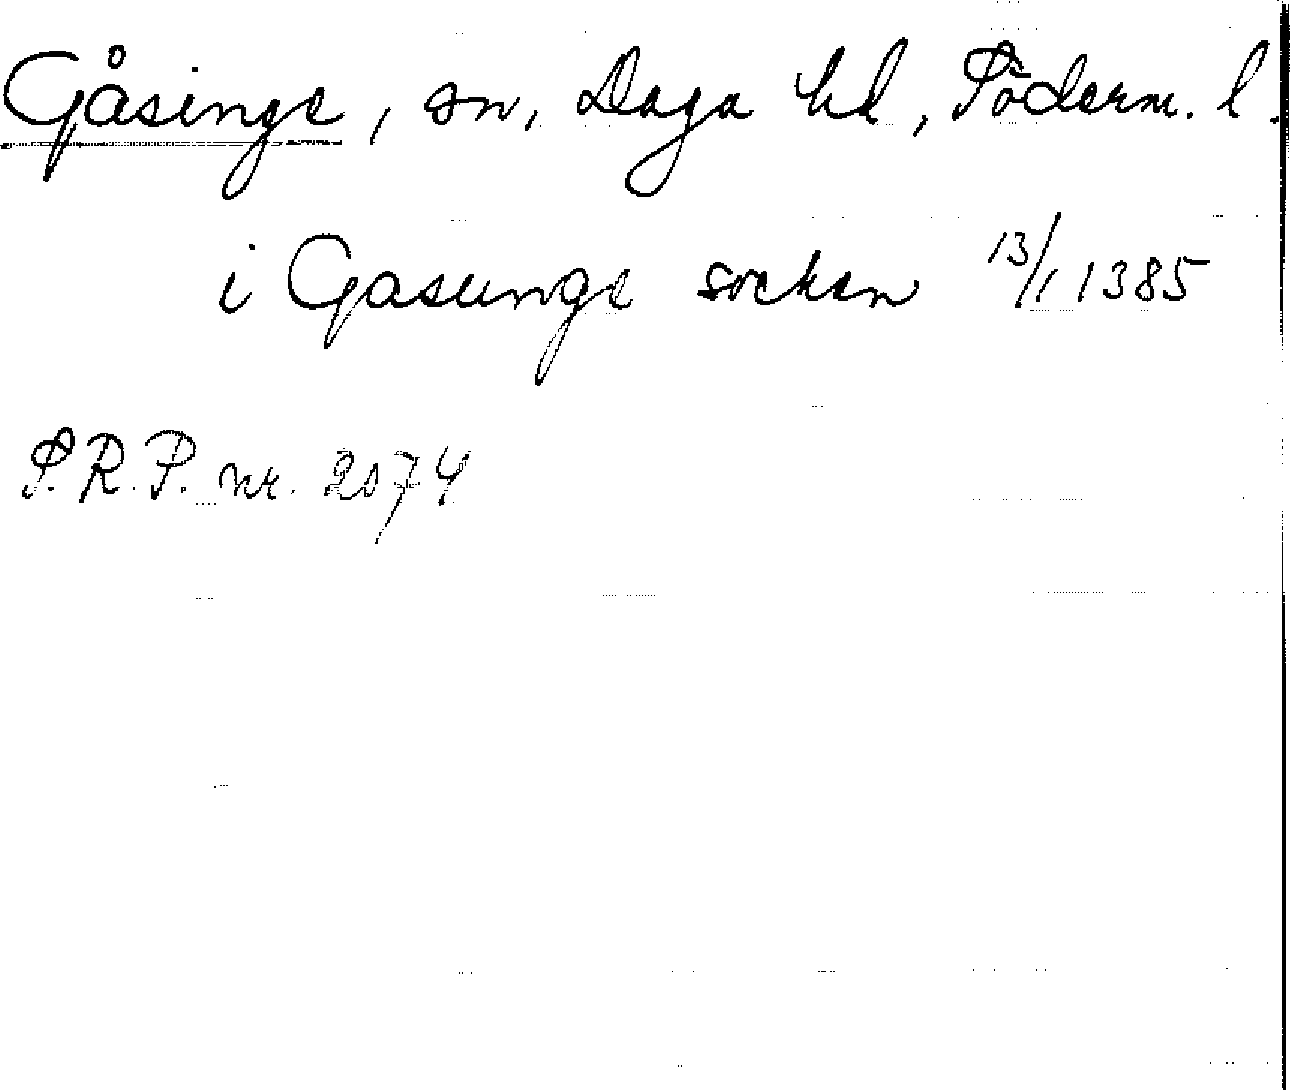 Gåsinge, sn, Daga hd, Söderm. l.
i Gasunge socken 13/1 1385
S.R.P. nr. 2074